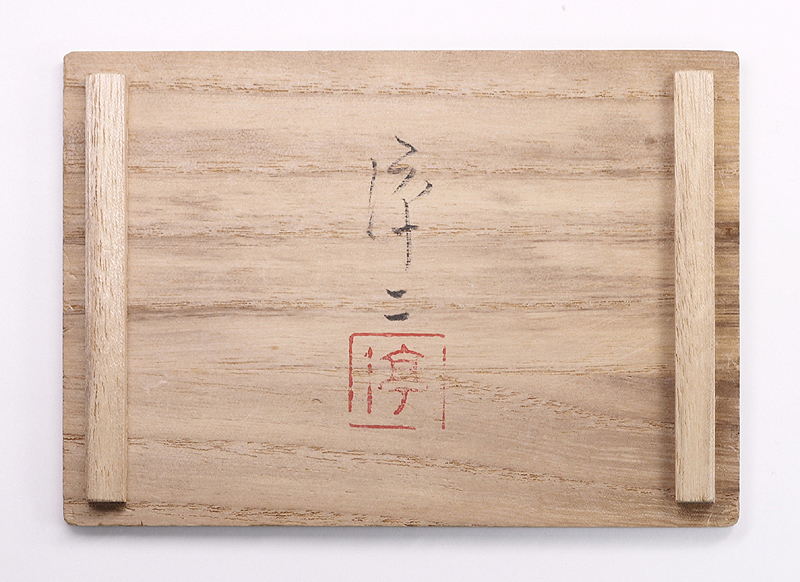 淳二
淳